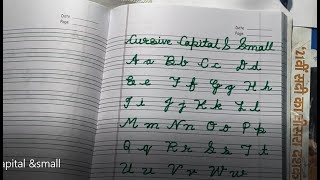 Date
Page
Date
Page
Cursive Capital & Small
A a B b C c D d
E e F f G g H h
I i J j K k L l
M m N n O o P p
Q q R r S s T t
U u V v W w
apital &small
सदी का तीसरा दशक